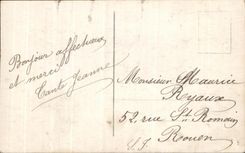 Bonjour affectueux
et merci
Tante Jeanne
Monsieur Maurice
Ryaux
52, rue St Romain
Rouen